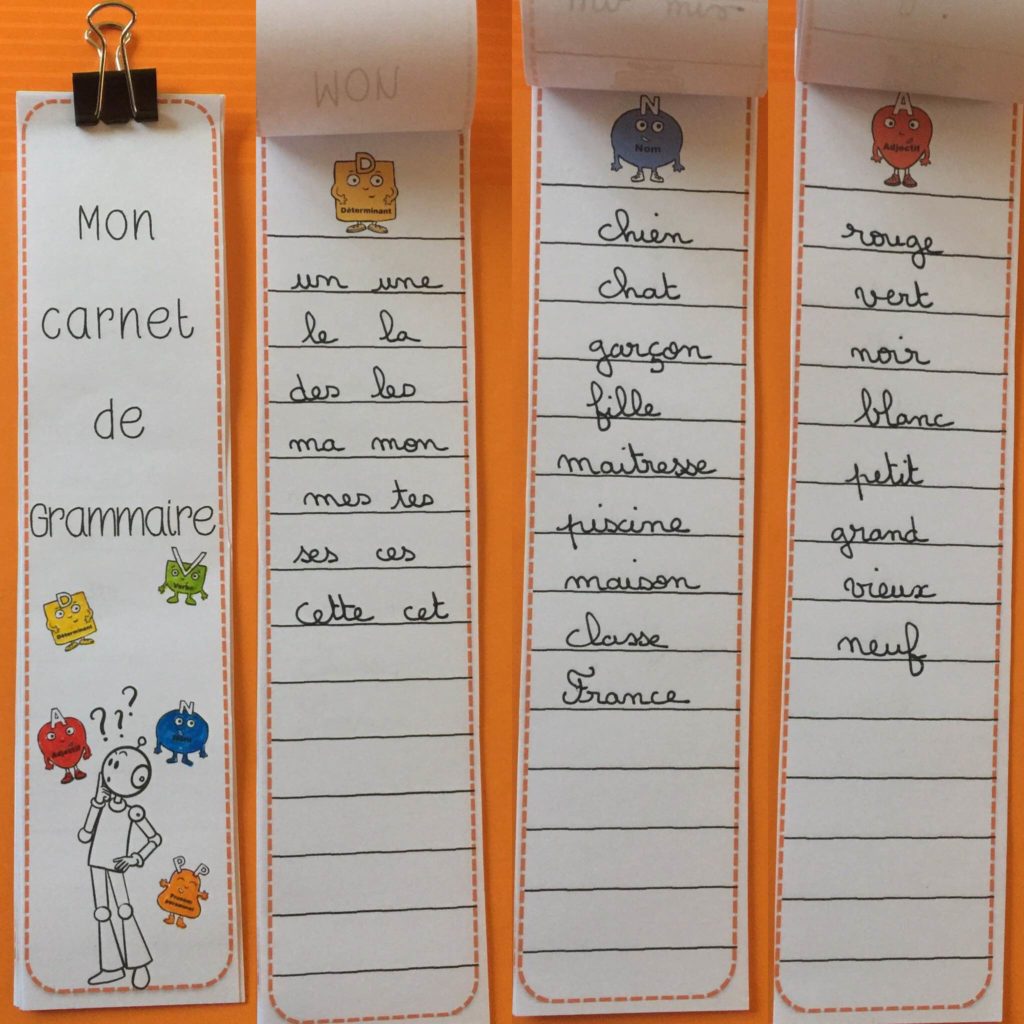 Mon
carnet
de
Grammaire
V
Verbe
D
Déterminant
???
A
Adjectif
N
Nom
P P
Pronom
personnel
MON
D
Déterminant
un une
le la
des les
ma mon
mes tes
ses ces
cette cet
N
Nom
chien
chat
garçon
fille
maitresse
piscine
maison
classe
France
A
Adjectif
rouge
vert
noir
blanc
petit
grand
vieux
neuf